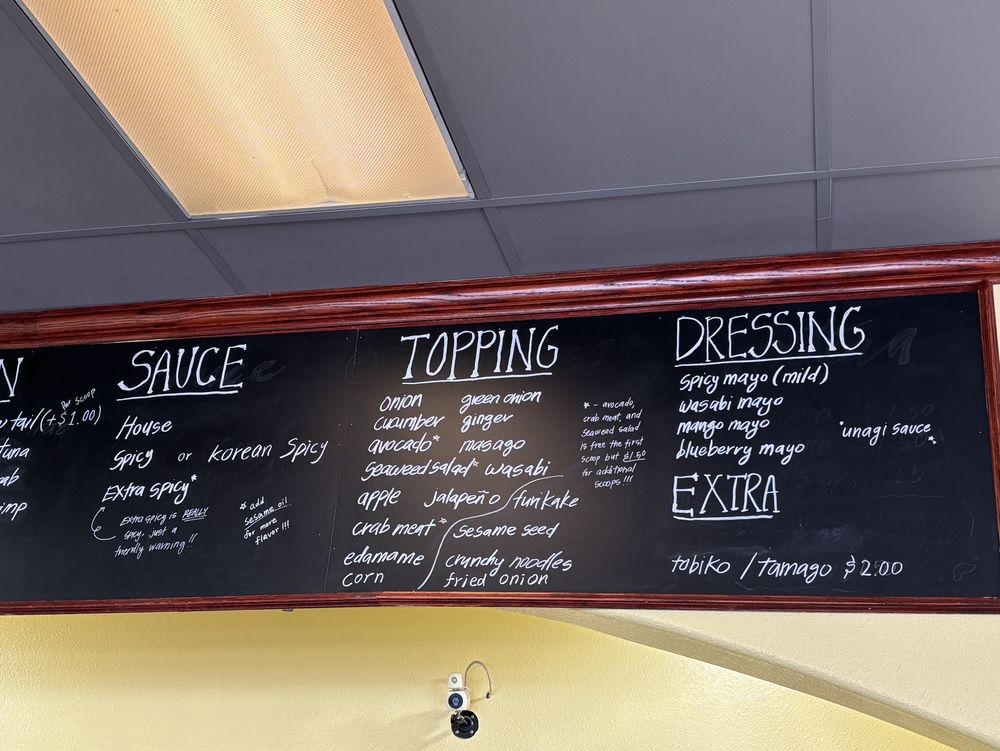 N
tail (+$1.00)
Per scoop
tuna
SAUCE
House
Spicy or Korean Spicy
Extra Spicy*
Extra spicy is REALLY
spicy, just a
friendly warning!!
* add
sesame oil
for more
flavor!!!
TOPPING
onion green onion
cucumber ginger
avocado* masago
Seaweed salad* wasabi
apple jalapeño furikake
crab meat* sesame seed
edamame crunchy noodles
corn fried onion
* - avocado,
crab meat, and
seaweed salad
is free the first
scoop but $1.50
for additional
scoops!!!
DRESSING
spicy mayo (mild)
wasabi mayo
mango mayo
blueberry mayo
*unagi sauce*
EXTRA
tobiko / tamago $2.00